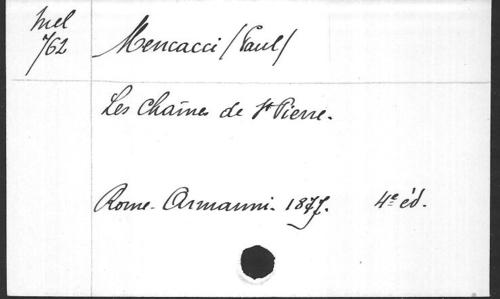 Mel
762
Mencacci (Paul)
Les Chaînes de St Pierre.
Rome. Armanni. 1877. 4e éd.